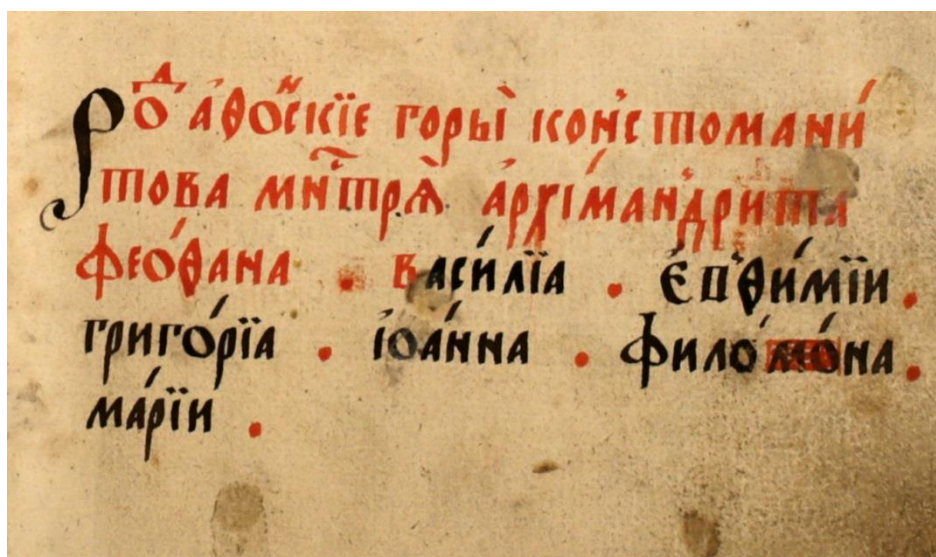 Роⷣ аѳо́нⷭ҇скїе горы̀ конс̾томани́
това мн҃тр̑ѧ а҆рхі́ман̾дрита
Феоѳана . васи́лїа . є҆п̾ѳи́мїи .
григо́рїа . іѡа́нна . фило́мо́на .
ма́рїи .